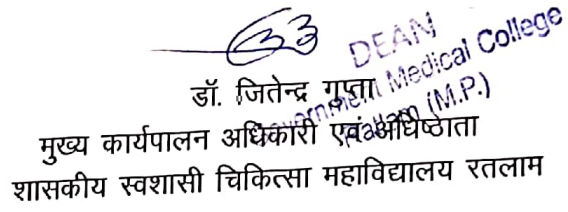 DEAN
Government Medical College
Ratlam (M.P.)
डॉ. जितेन्द्र गुप्ता
मुख्य कार्यपालन अधिकारी एवं अधिष्ठाता
शासकीय स्वशासी चिकित्सा महाविद्यालय रतलाम